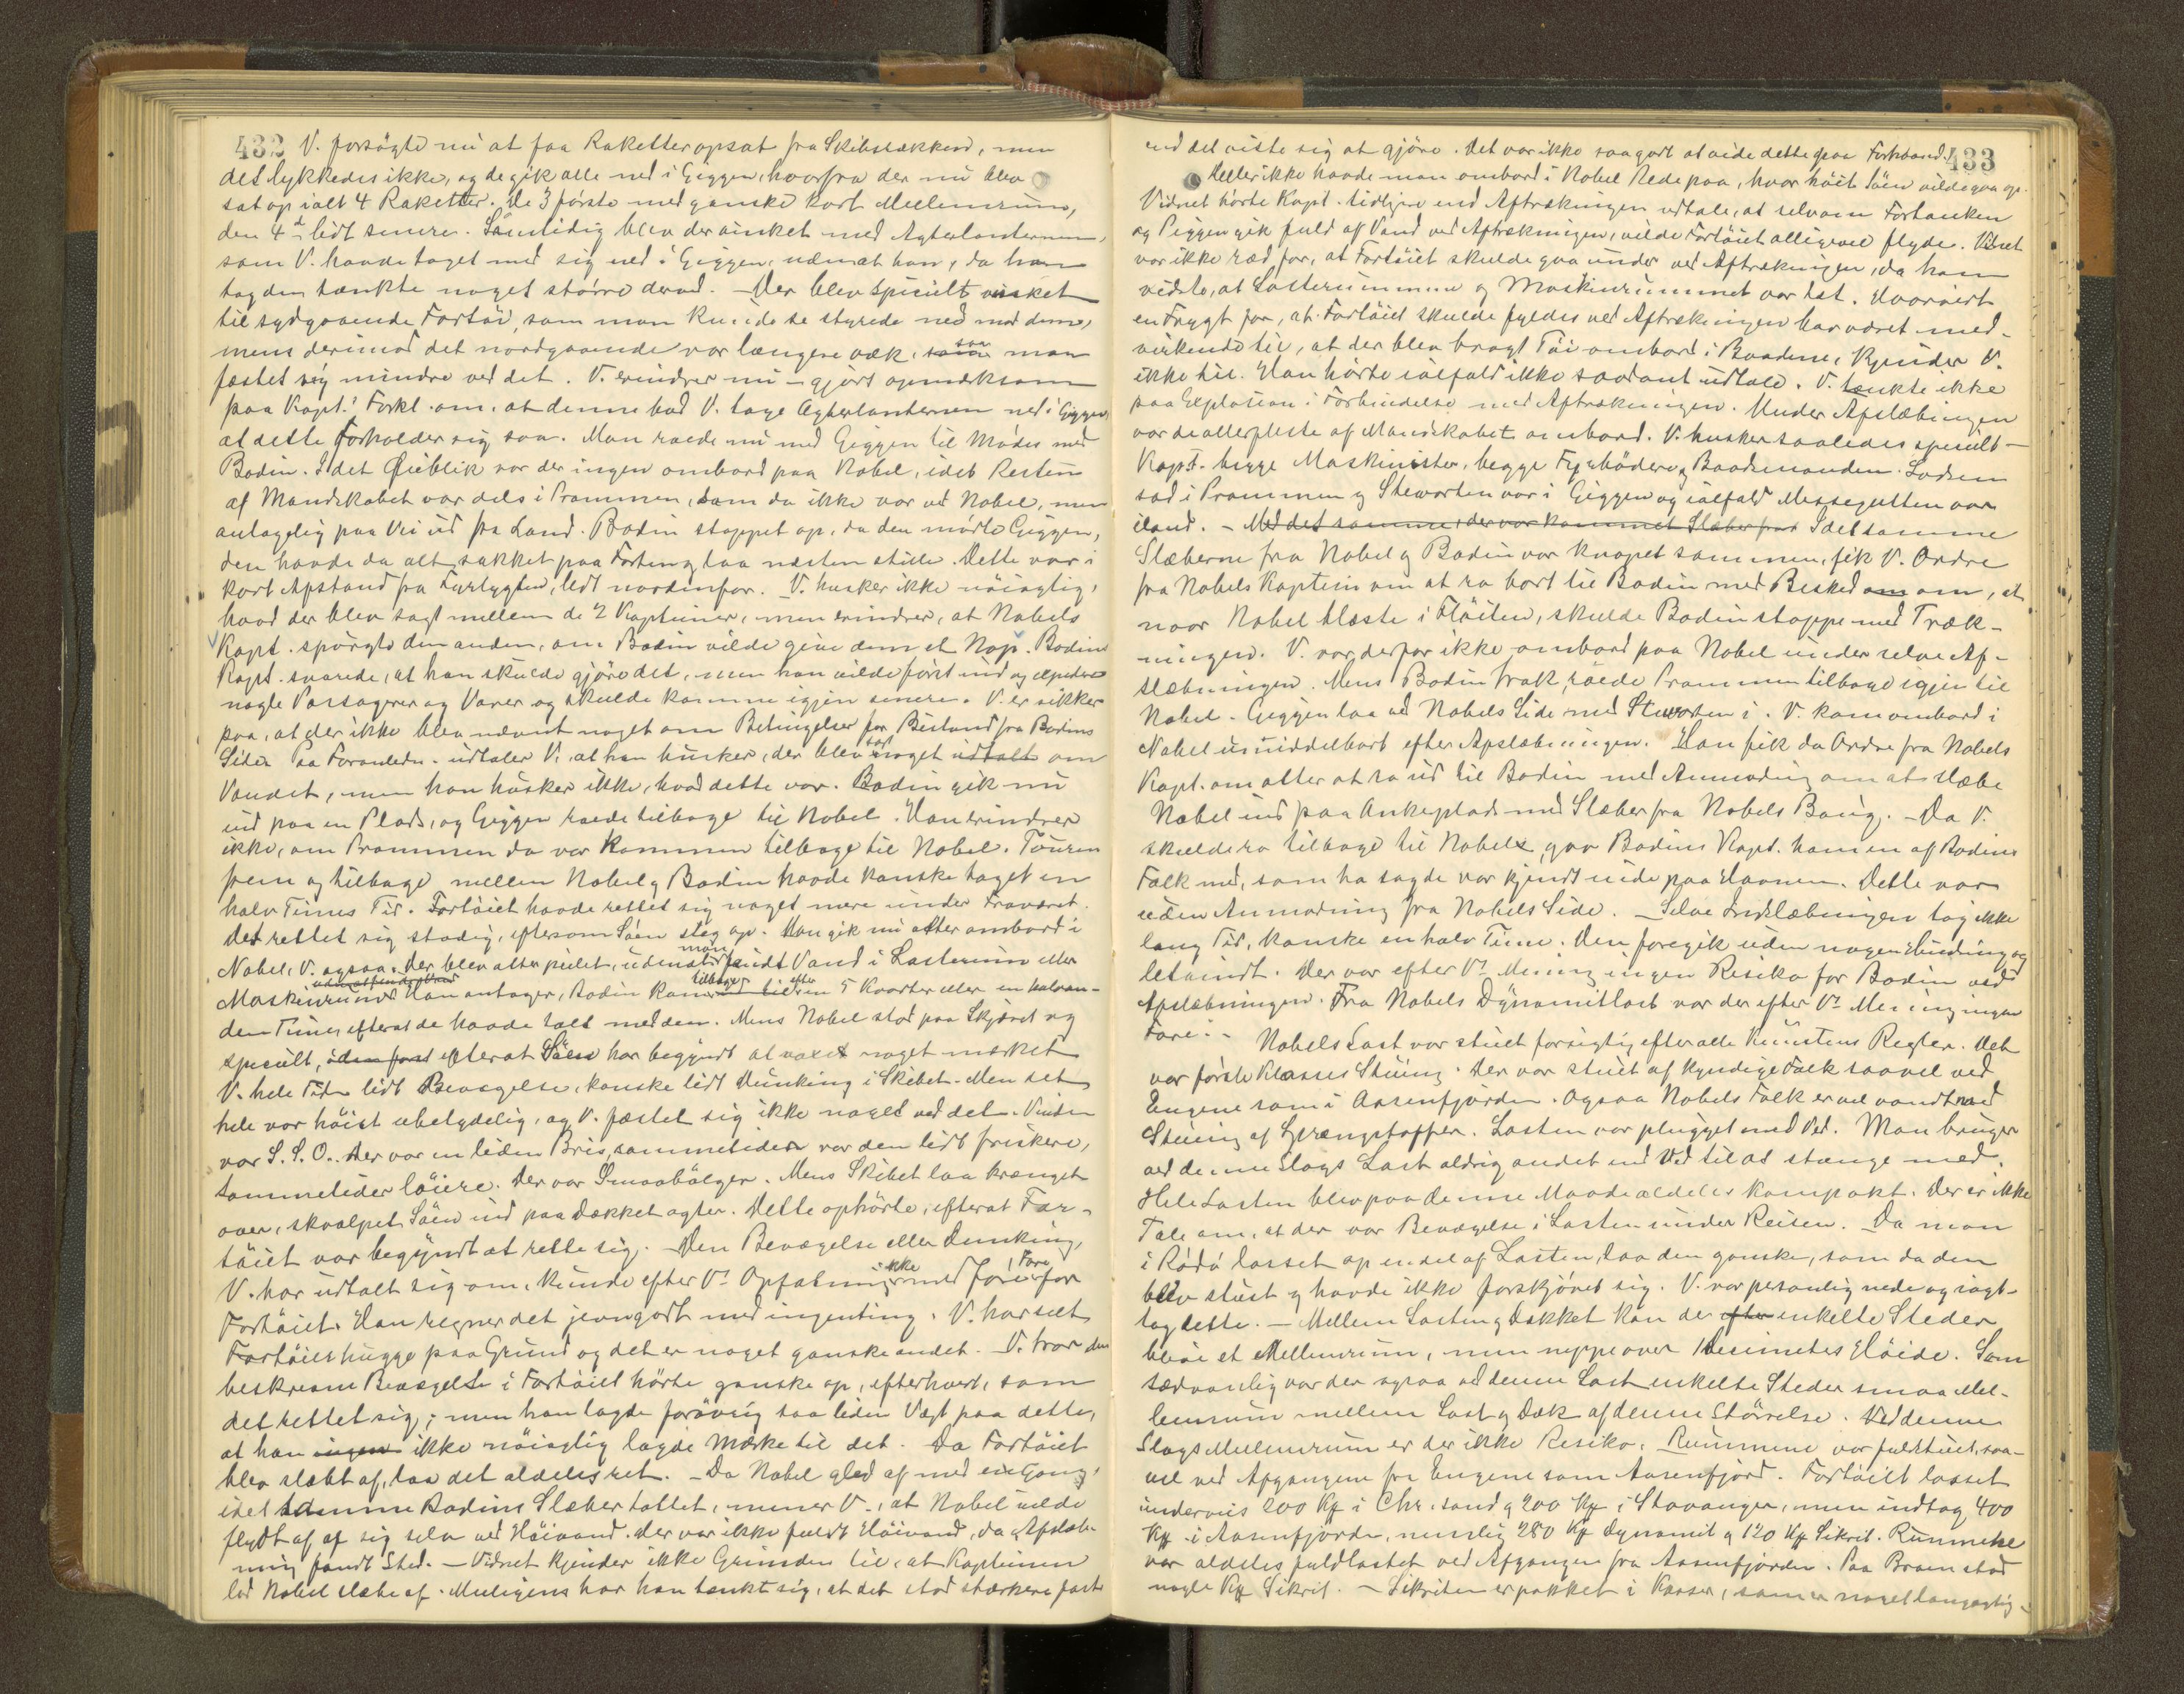 432 V. forsögte nu at faa Raketter opsat fra Skibsdækket, men
det lykkedes ikke, og de gik alle ned i Giggen, hvorfra der nu blev
sat op ialt 4 Raketter. De 3 förste med ganske kort Mellemrum,
den 4de lidt senere. Samtidig blev der vinket med Agterlanternen,
som V. havde taget med sig ned i Giggen, uden at han, da han
tog den tænkte noget större derved. Der blev specielt vinket
til sydgaaende Fartöi, som man kunde se styrede ned mod dem,
mens derimod det nordgaaende var længere væk, saa man
fæstet sig mindre ved det. V. erindrer nu - gjort opmærksom
paa Kapt.s Forkl. om, at denne bad V. tage Agterlanternen ned i Giggen,
at dette forholder sig saa. Man roede nu med Giggen til Mödes med
Bodin. I det Öieblik var der ingen ombord paa Nobel, idet Resten
af Mandskabet var dels i Prammen, som da ikke var ved Nobel, men
antagelig paa Vei ud fra Land. Bodin stoppet op, da den mödte Giggen,
den havde da alt sakket paa Farten og laa næsten stille. Dette var i
kort Afstand fra Fyrlygten, lidt nordenfor. V. husker ikke nöiagtig,
hvad der blev sagt mellem de 2 Kapteiner, men erindrer, at Nobels
Kapt. spurgte den anden, om Bodin vilde give dem et Nap. Bodins
Kapt. svarede, at han skulde gjöre det, men han vilde först ind og expedere
nogle Passagerer og Varer og skulde komme igjen senere. V. er sikker
paa, at der ikke blev nævnt noget om Betingelser for Bistand fra Bodins
Side. Paa Foranledn. udtaler V., at han husker, der blev sagt noget udtalt om
Vandet, men han husker ikke, hvad dette var. Bodin gik nu
ind paa en Plads, og Giggen roede tilbage til Nobel. Han erindrer
ikke, om Prammen da var kommen tilbage til Nobel. Touren
frem og tilbage mellem Nobel og Bodin havde kanske taget en
halv Times Tid. Fartöiet havde rettet sig noget mere under Fraværet.
Det rettet sig stadig, eftersom Söen steg op. Man gik nu atter ombord i
Nobel, V. ogsaa. Der blev atter peilet, uden at man fandt Vand i Lasterum eller
Maskinrum. Han antager, Bodin kom tilbage efter en 5 Kvarter eller en halvan-
den Time, efterat de havde talt med den. Mens Nobel stod paa Skjæret og
specielt, efterat Söen har begyndt at voxe noget mærket
V. hele Tiden lidt Bevægelse, kanske lidt Dunking i Skibet. Men det
hele var höist ubetydelig, og V. fæstet sig ikke noget ved det. Vinden
var S.S.O. Der var en liden Bris, sommetider var den lidt friskere,
sommetider löiere. Der var Smaabölger. Mens Skibet laa krænget
over, skvalpet Söen ind paa Dækket agter. Dette ophörte, efterat Far-
töiet var begyndt at rette sig. Den Bevægelse eller Dunking,
V. har udtalt sig om, kunde efter V.s Opfatning ikke medföre Fare for
Fartöiet. Han regner det jevngodt med ingenting. V. har seet
Fartöier hugge paa Grund og det er noget ganske andet. V. tror den
beskrevne Bevægelse i Fartöiet hörte ganske op, efterhvert, som
det rettet sig; men han lagde forövrig saa liden Vægt paa dette,
at han ingen ikke nöiagtig lagde Mærke til det. Da Fartöiet
blev slæbt af, laa det aldeles ret. - Da Nobel gled af med engang,
idet samme Bodins Slæber tottet, mener V., at Nobel vilde
flydt af af sig selv ved Höivand. Der var ikke fuldt Höivand, da Afslæb-
ning fandt Sted. - Vidnet kjender ikke Grunden til, at Kapteinen
lod Nobel slæbe af. Muligens har han tænkt sig, at det stod stærkere fast
end det viste sig at gjöre. Det var ikke saa godt at vide dette paa Forhaand. 433
Heller ikke havde man ombord i Nobel Rede paa, hvor höit Söen vilde gaa op.
Vidnet hörte Kapt. tidligere end Aftrækningen udtale, at selv om Fortanken
og Piggen gik fuld af Vand ved Aftrækningen, vilde Fartöiet alligevel flyde. Vidnet
var ikke ræd for, at Fartöiet skulde gaa under ved Aftrækningen, da han
vidste, at Lasterummene og Maskinrummet var tæt. Hvorvidt
en Frygt for, at Fartöiet skulde fyldes ved Aftrækningen har været med-
virkende til, at der blev bragt Töi ombord i Baadene, kjender V.
ikke til. Han hörte ialfald ikke saadant udtale. V. tænkte ikke
paa Explosion i Forbindelse med Aftrækningen. Under Afslæbingen
var de allerfleste af Mandskabet ombord. V. husker saaledes specielt -
Kapt. begge Maskinister, begge Fyrbödere og Baadsmanden. Lodsen
sad i Prammen og Stewarten var i Giggen og ialfald Messegutten var
iland. - Med det samme der var kommet Slæber fra I det samme
Slæberne fra Nobel og Bodin var knopet sammen, fik V. Ordre
fra Nobels Kaptein om at ro bort til Bodin med Besked om om, at
naar Nobel blæste i Flöiten, skulde Bodin stoppe med Træk-
ningen. V. var derfor ikke ombord paa Nobel under selve Af-
slæbningen. Mens Bodin trak, roede Prammen tilbage igjen til
Nobel. Giggen laa ved Nobels Side med Stewarten i. V. kom ombord i
Nobel umiddelbart efter Afslæbningen. Han fik da Ordre fra Nobels
Kapt. om atter at ro ud til Bodin med Anmodning om at slæbe
Nobel ind paa Ankerplads med Slæber fra Nobels Boug. - Da V.
skulde ro tilbage til Nobel, gav Bodins Kapt. ham en af Bodins
Folk med, som han sagde var kjendt inde paa Havnen. Dette var
uden Anmodning fra Nobels Side. - Selve Indslæbningen tog ikke
lang Tid, kanske en halv Time. Den foregik uden nogen Hindring og
letvindt. Der var efter V.s Mening ingen Risiko for Bodin ved
Afslæbningen. Fra Nobels Dynamitlast var der efter V.s Mening ingen
Fare. - Nobels Last var stuet forsigtig efter alle Kunstens Regler. Det
var förste Klasses Stuing. Der var stuet af kyndige Folk saavel ved
Engene som i Aasenfjorden. Ogsaa Nobels Folk er vel vandt med
Stuing af Sprængstoffer. Lasten var plugget med Ved. Man bruger
ved denne Slags Last aldrig andet end Ved til at stænge med.
Hele Lasten blev paa denne Maade aldeles kompakt. Der er ikke
Tale om, at der var Bevægelse i Lasten under Reisen. Da man
i Rödö losset op en del af Lasten, laa den ganske, som da den
blev stuet og havde ikke forskjövet sig. V. var personlig nede og iagt-
tog dette. - Mellem Lasten og Dækket kan der efter enkelte Steder
blive et Mellemrum, men neppe over 1 Decimeters Höide. Som
sædvanlig var der ogsaa ved denne Last enkelte Steder smaa Mel-
lemrum mellem Last og Dæk af denne Störrelse. Ved denne
Slags Mellemrum er der ikke Risiko. Rummene var fuldstuet, saa-
vel ved Afgangen fra Engene som Aasenfjord. Fartöiet losset
underveis 200 Kg i Chr.sand og 200 Kg i Stavanger, men indtog 400
Kg i Aasenfjorden, nemlig 280 Kg Dynamit og 120 Kg Sikrit. Rummene
var aldeles fuldlastet ved Afgangen fra Aasenfjorden. Paa Broen stod
nogle Kg Sikrit. - Sikriten er pakket i Kasser, som er noget langagtig-